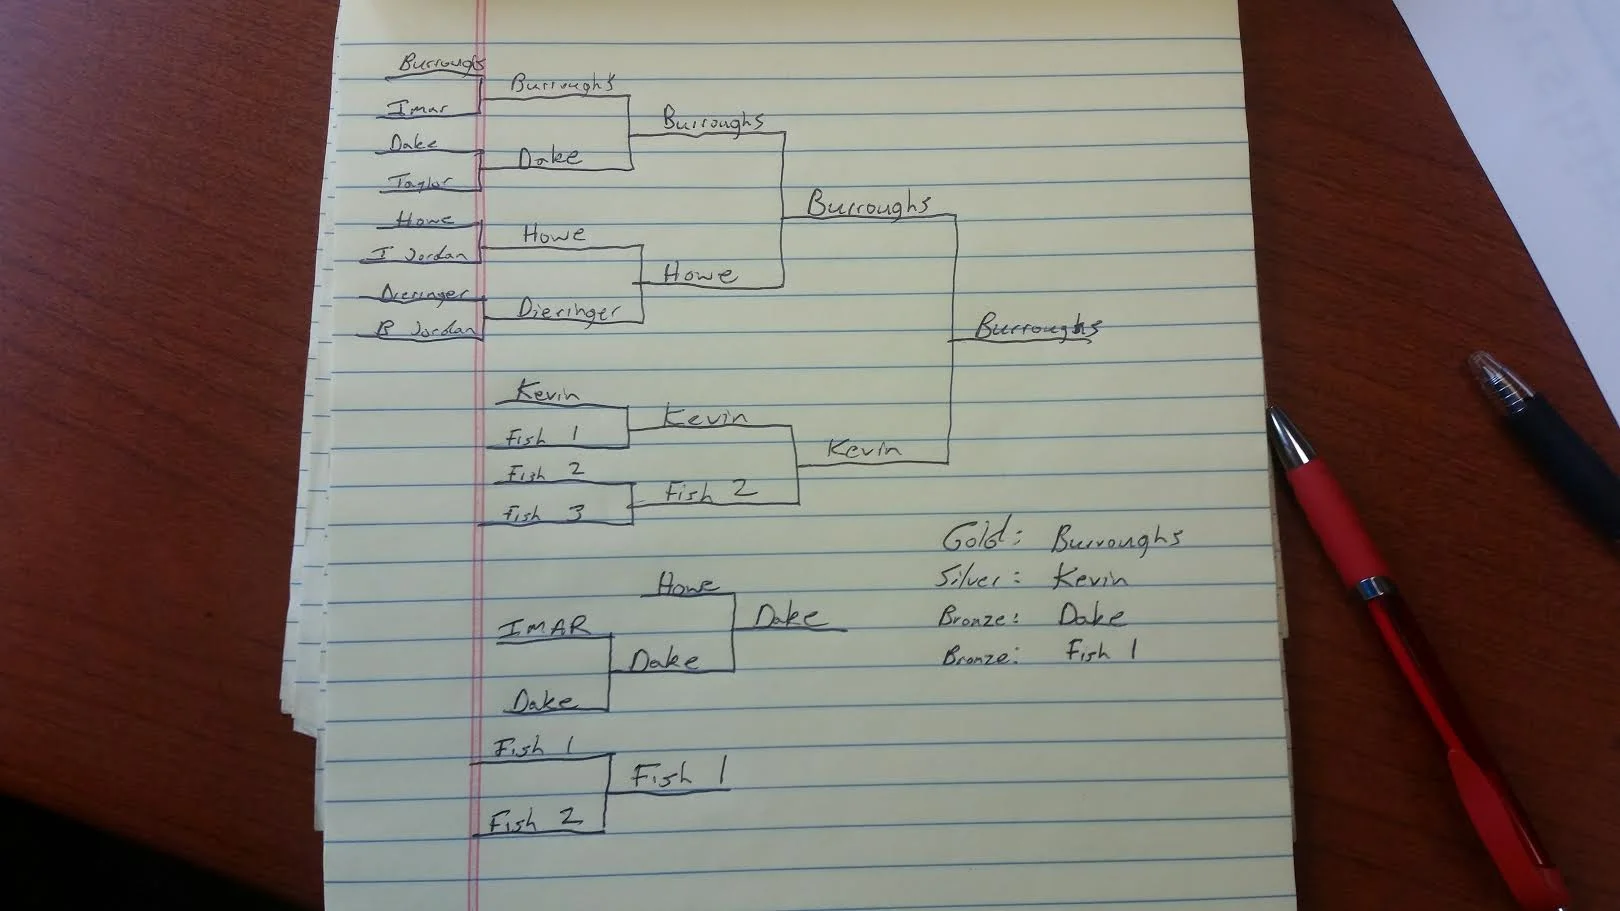 Burroughs
Burroughs
Imar
Burroughs
Dake
Dake
Taylor
Burroughs
Howe
Howe
I Jordan
Howe
Dieringer
Dieringer
B Jordan
Burroughs
Kevin
Kevin
Fish 1
Kevin
Fish 2
Fish 2
Fish 3
Gold: Burroughs
Silver: Kevin
Bronze: Dake
Bronze: Fish 1
Howe
IMAR
Dake
Dake
Dake
Fish 1
Fish 1
Fish 2